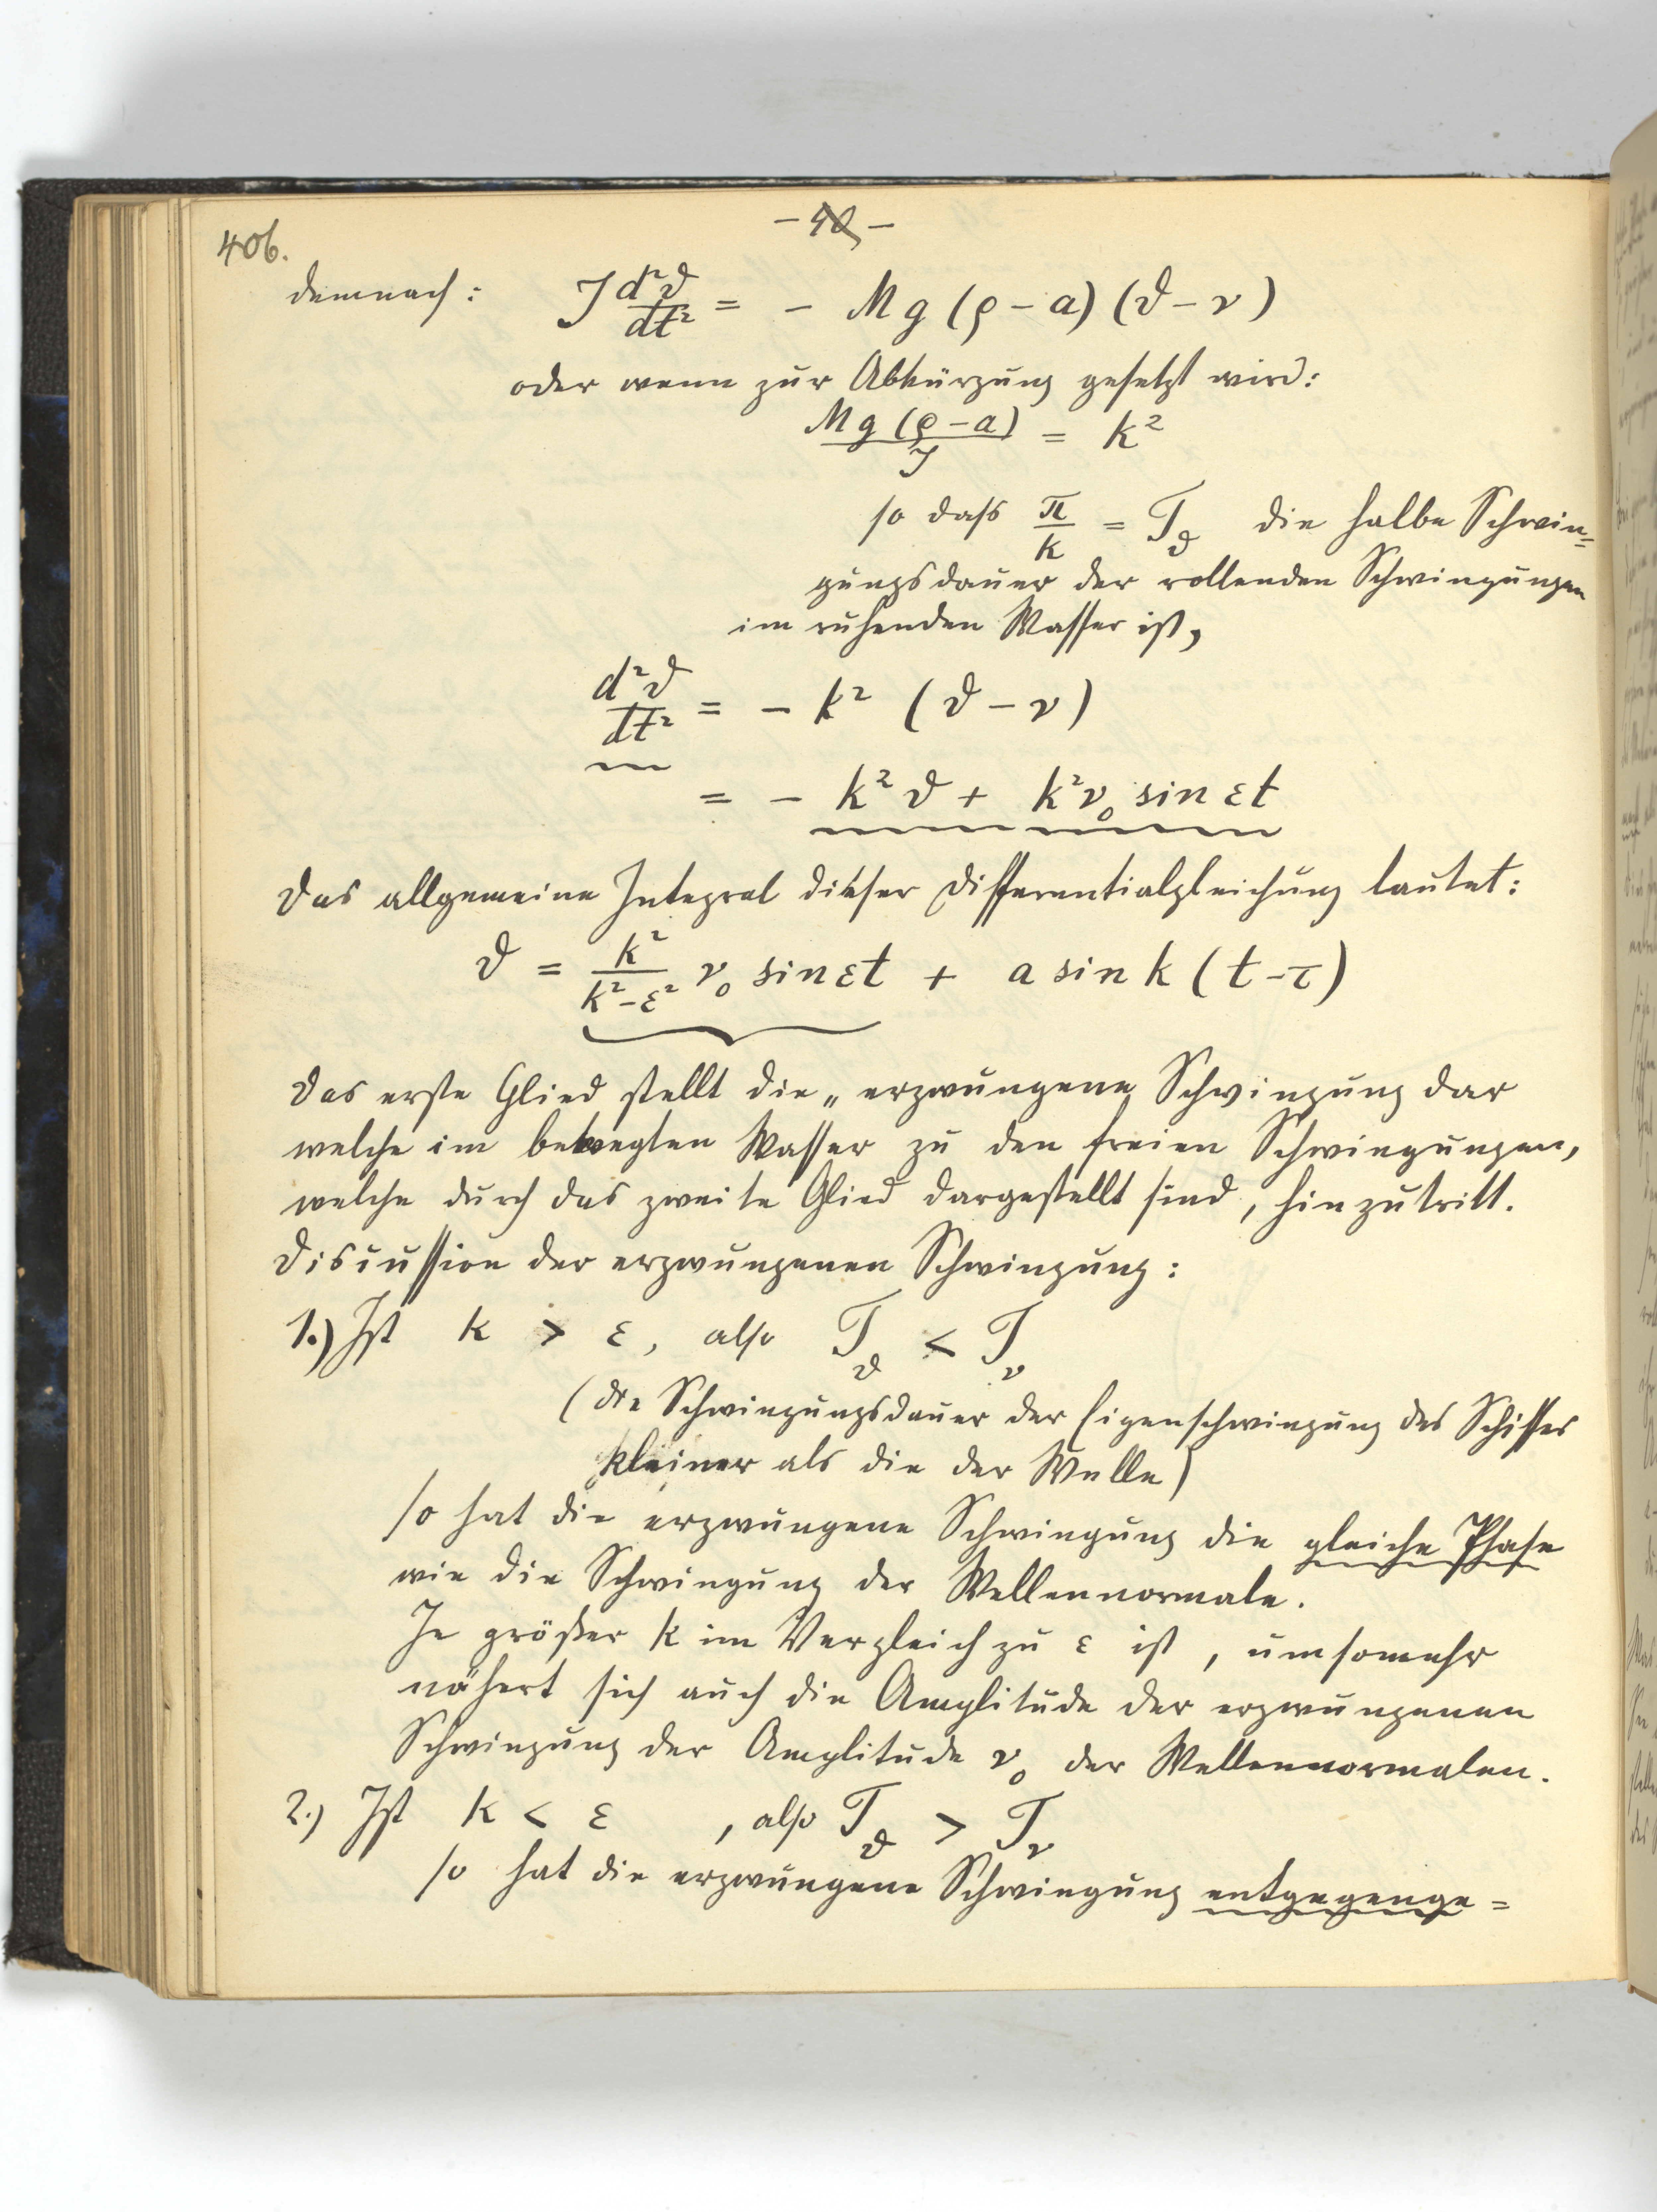 406.
demnach: J d²ϑ/dt² = - Mg (ρ - a) (ϑ - ν)
oder wenn zur Abkürzung gesetzt wird:
Mg (ρ - a) / J = k²
so dass π/k = T_ϑ die halbe Schwin=
gungsdauer der rollenden Schwingungen
im ruhenden Wasser ist,
d²ϑ/dt² = - k² (ϑ - ν)
= - k² ϑ + k² ν₀ sin εt
Das allgemeine Integral dieser Differentialgleichung lautet:
ϑ = k²/(k² - ε²) ν₀ sin εt + a sin k (t - τ)
Das erste Glied stellt die „erzwungene Schwingung dar
welche im bewegten Wasser zu den freien Schwingungen,
welche durch das zweite Glied dargestellt sind, hinzutritt.
Discussion der erzwungenen Schwingung:
1.) Ist k > ε, also T_ϑ < T_ν
(die Schwingungsdauer der Eigenschwingung des Schiffes
kleiner als die der Welle)
so hat die erzwungene Schwingung die gleiche Phase
wie die Schwingung der Wellennormale.
Je größer k im Vergleich zu ε ist, umsomehr
nähert sich auch die Amplitude der erzwungenen
Schwingung der Amplitude ν₀ der Wellennormalen.
2.) Ist k < ε, also T_ϑ > T_ν
so hat die erzwungene Schwingung entgegenge=